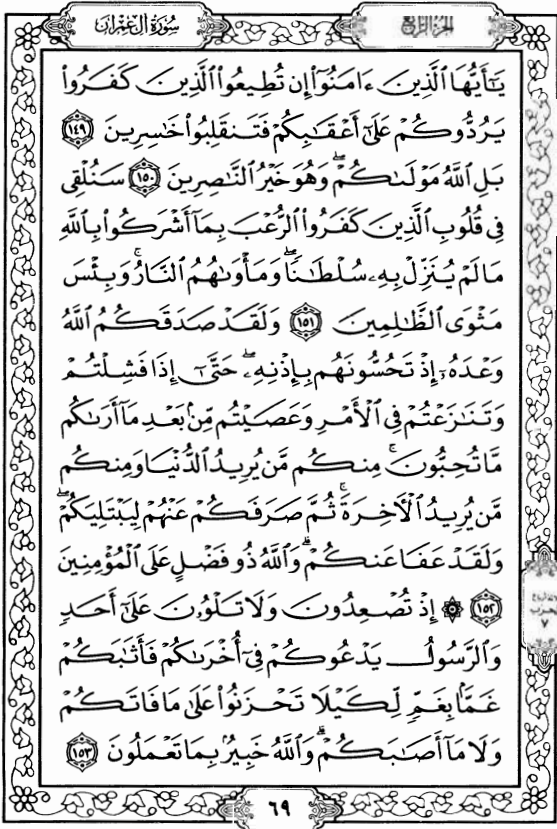 سُورَةُ آلِ عِمْرَانَ
الجُزْءُ الرَّابِعُ
يَٰٓأَيُّهَا ٱلَّذِينَ ءَامَنُوٓا۟ إِن تُطِيعُوا۟ ٱلَّذِينَ كَفَرُوا۟
يَرُدُّوكُمْ عَلَىٰٓ أَعْقَٰبِكُمْ فَتَنقَلِبُوا۟ خَٰسِرِينَ ١٤٩
بَلِ ٱللَّهُ مَوْلَىٰكُمْ ۖ وَهُوَ خَيْرُ ٱلنَّٰصِرِينَ ١٥٠ سَنُلْقِى
فِى قُلُوبِ ٱلَّذِينَ كَفَرُوا۟ ٱلرُّعْبَ بِمَآ أَشْرَكُوا۟ بِٱللَّهِ
مَا لَمْ يُنَزِّلْ بِهِۦ سُلْطَٰنًا ۖ وَمَأْوَىٰهُمُ ٱلنَّارُ ۚ وَبِئْسَ
مَثْوَى ٱلظَّٰلِمِينَ ١٥١ وَلَقَدْ صَدَقَكُمُ ٱللَّهُ
وَعْدَهُۥٓ إِذْ تَحُسُّونَهُم بِإِذْنِهِۦ ۖ حَتَّىٰٓ إِذَا فَشِلْتُمْ
وَتَنَٰزَعْتُمْ فِى ٱلْأَمْرِ وَعَصَيْتُم مِّنۢ بَعْدِ مَآ أَرَىٰكُم
مَّا تُحِبُّونَ ۚ مِنكُم مَّن يُرِيدُ ٱلدُّنْيَا وَمِنكُم
مَّن يُرِيدُ ٱلْءَاخِرَةَ ۚ ثُمَّ صَرَفَكُمْ عَنْهُمْ لِيَبْتَلِيَكُمْ ۖ
وَلَقَدْ عَفَا عَنكُمْ ۗ وَٱللَّهُ ذُو فَضْلٍ عَلَى ٱلْمُؤْمِنِينَ
١٥٢ ۞ إِذْ تُصْعِدُونَ وَلَا تَلْوُۥنَ عَلَىٰٓ أَحَدٍ
وَٱلرَّسُولُ يَدْعُوكُمْ فِىٓ أُخْرَىٰكُمْ فَأَثَٰبَكُمْ
غَمًّۢا بِغَمٍّ لِّكَيْلَا تَحْزَنُوا۟ عَلَىٰ مَا فَاتَكُمْ
وَلَا مَآ أَصَٰبَكُمْ ۗ وَٱللَّهُ خَبِيرٌۢ بِمَا تَعْمَلُونَ ١٥٣
٦٩